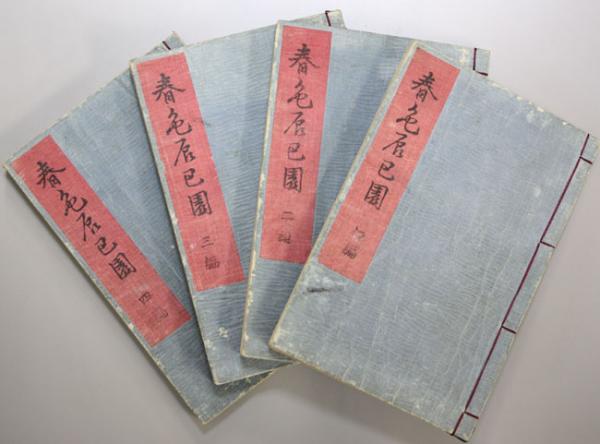 春色辰巳園 初編
春色辰巳園 二編
春色辰巳園 三編
春色辰巳園 四編